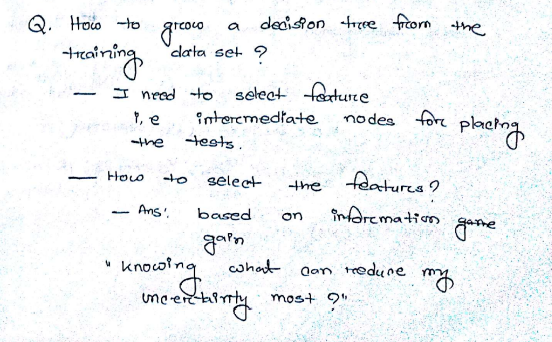 Q. How to grow a decision tree from the
training data set ?
— I need to select feature
i,e intermediate nodes for placing
the tests.
— How to select the features ?
— Ans: based on information game
gain
" knowing what can reduce my
uncertainty most ?"